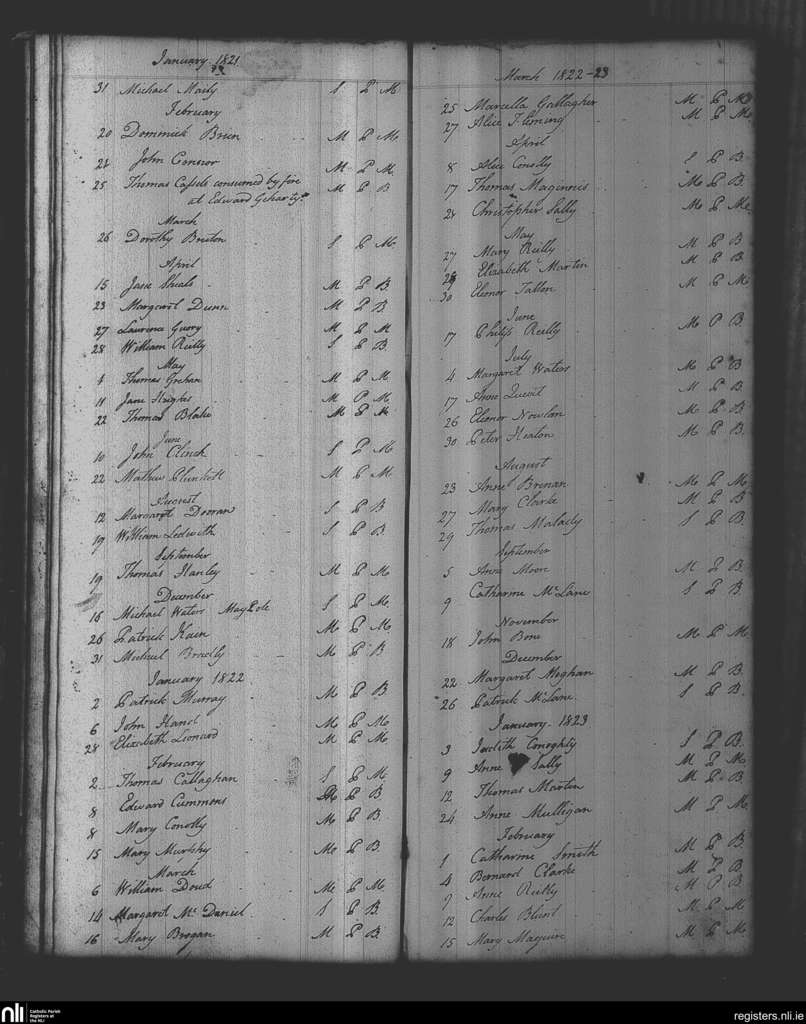 January 1821
31 Michael Maily S P M
February
20 Dominick Brien M P M
22 John Connor M P M
25 Thomas Cassidi consumed by fire M P B
at Edward Geharty's
March
26 Dorothy Breton S P M
April
15 Jane Sheals M P B
23 Margaret Dunn M P B
27 Laurence Guory M P M
28 William Reilly S P B
May
4 Thomas Grehan M P M
11 Jane Hughes M P M
22 Thomas Blake M P M
June
10 John Clinch S P M
22 Mathew Plunkett M P M
August
12 Margaret Dorran S P B
19 William Ledwith S P B
September
19 Thomas Hanley M P M
December
16 Michael Waters May Pole S P M
26 Patrick Kain M P M
31 Michael Brady M P B
January 1822
2 Patrick Murray M P B
6 John Hand M P M
28 Elizabeth Leonard M P M
February
2 Thomas Callaghan S P M
8 Edward Cummons M P B
8 Mary Conolly M P B
15 Mary Murphy M P B
March
6 William Doud M P M
14 Margaret Mc Daniel S P B
16 Mary Brogan M P B
March 1822-23
25 Marcella Gallagher M P M
27 Alice Fleming M P M
April
8 Alice Conolly S P B
17 Thomas Maginnis M P B
24 Christopher Lally M P M
May
27 Mary Reilly M P B
28 Elizabeth Martin M P B
30 Elenor Tallon M P M
June
17 Philip Reilly M P B
July
4 Margaret Waters M P B
17 Anne M P B
26 Elenor Nowlan M P B
30 Peter Heaton M P B
August
23 Anne Brenan M P M
27 Mary Clarke M P B
29 Thomas Malady S P B
September
5 Anne Moon M P B
9 Catharine Mc Lane S P B
November
18 John Bone M P M
December
22 Margaret Meghan M P B
26 Patrick Mc Lane S P B
January 1823
3 Judith Conoghty S P B
9 Anne Lally M P M
12 Thomas Martin M P B
24 Anne Mulligan M P M
February
1 Catharine Smith M P B
4 Bernard Clarke M P B
7 Anne Reilly M P B
12 Charles Blunt M P M
15 Mary Maguire M P M
nli Catholic Parish Registers at the NLI
registers.nli.ie